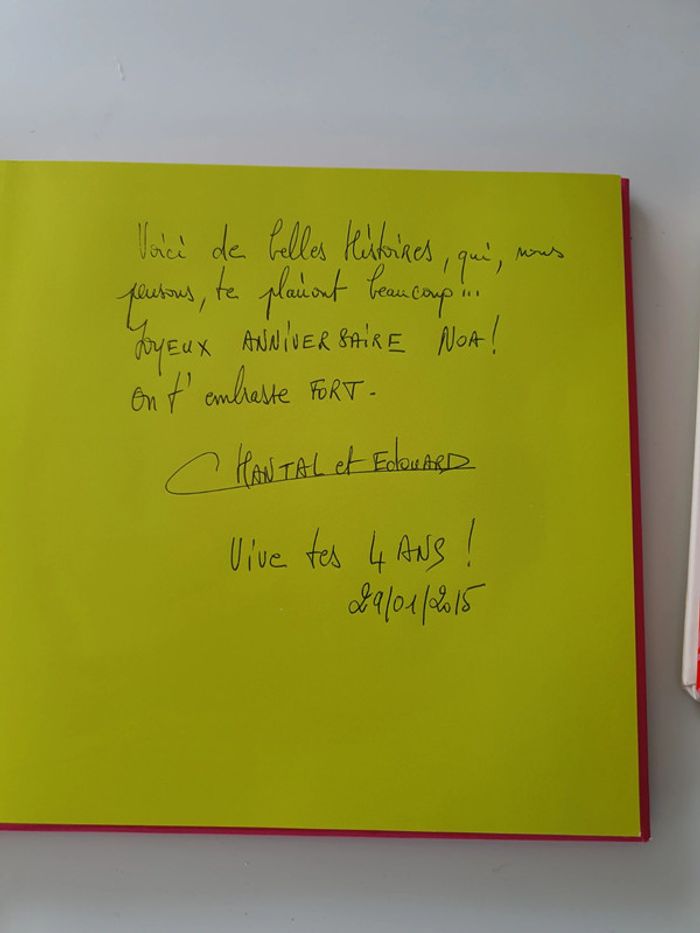 Voici de belles Histoires, qui, nous
pensons, te plairont beaucoup...
JOYEUX ANNIVERSAIRE NOA!
On t'embrasse FORT.
CHANTAL et EDOUARD
Vive tes 4 ANS !
29/01/2015